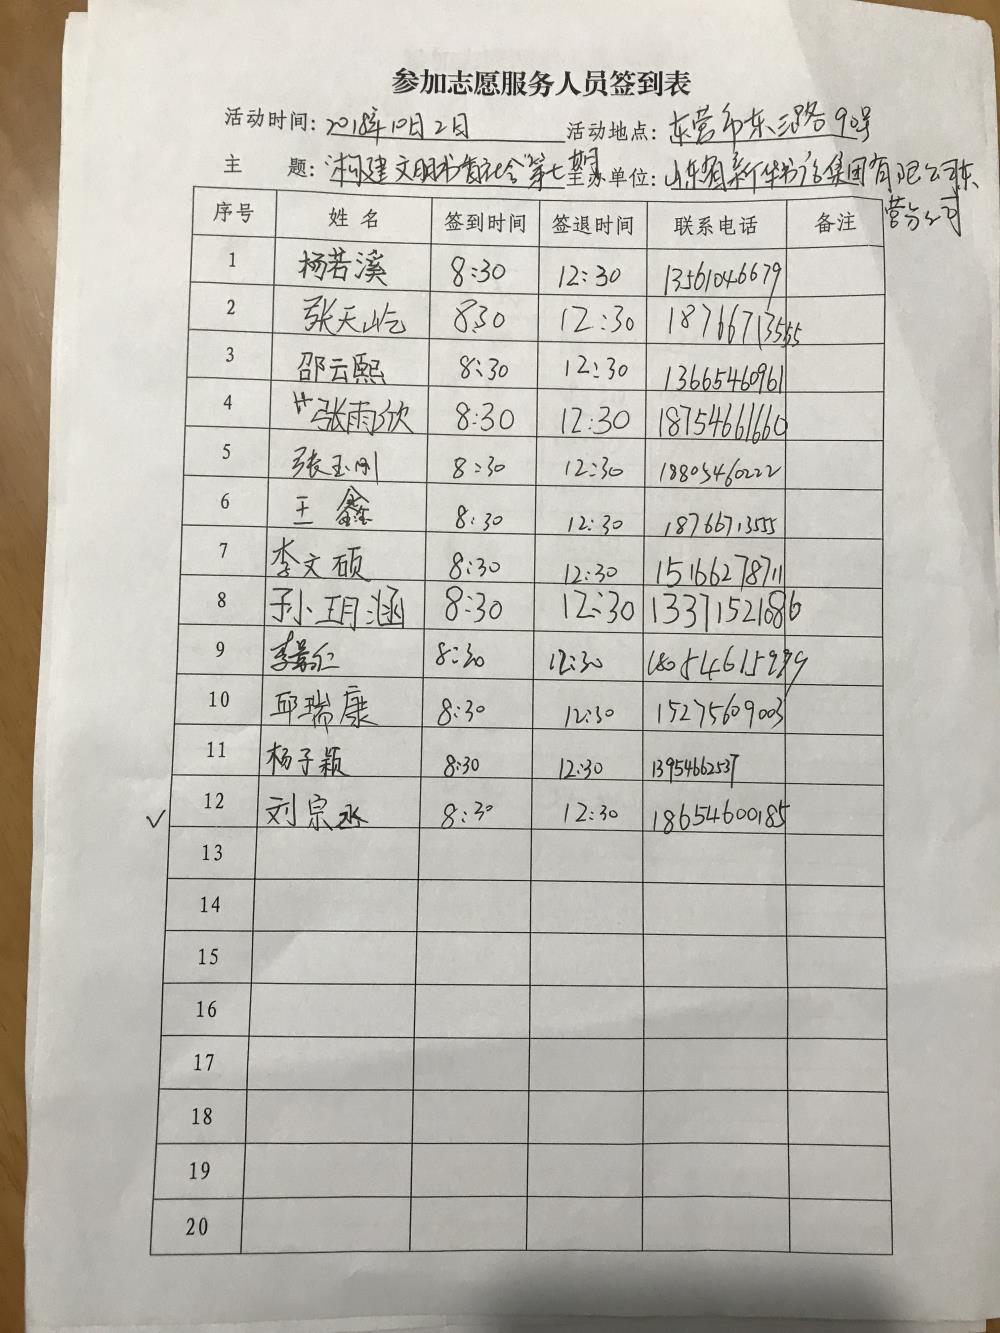 参加志愿服务人员签到表
活动时间: 2018年10月2日 活动地点: 东营市东三路90号
主 题: "构建文明书香社会"第七期 主办单位: 山东省新华书店集团有限公司东
营分公司
序号 姓名 签到时间 签退时间 联系电话 备注
1 杨若溪 8:30 12:30 13561046679
2 张天屹 830 12:30 18766713555
3 邵云熙 8:30 12:30 13665460961
4 张雨欣 8:30 12:30 18754661660
5 张玉刚 8:30 12:30 18805460222
6 王鑫 8:30 12:30 18766713555
7 李文硕 8:30 12:30 15166278711
8 孙玥涵 8:30 12:30 13371521086
9 李景仁 8:30 12:30 18054615999
10 邱瑞康 8:30 12:30 15275609003
11 杨子颖 8:30 12:30 13954662537
12 刘宗丞 8:30 12:30 18654600185
13
14
15
16
17
18
19
20